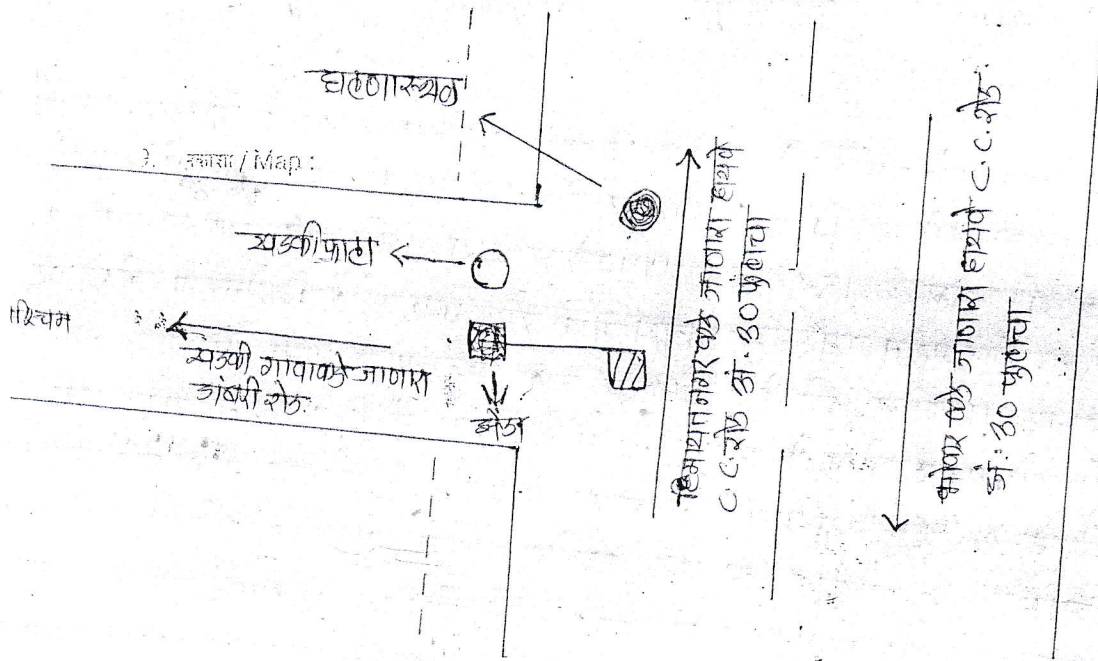 घटणास्थळ
नकाशा / Map :
खडकी फाटा
पश्चिम
खडकी गावाकडे जाणारा
डांबरी रोड
बोर्ड
हिमायतनगर कडे जाणारा हायवे
C.C. रोड अं. 30 फुटाचा
भोकर कडे जाणारा हायवे C.C. रोड
अं. 30 फुटाचा